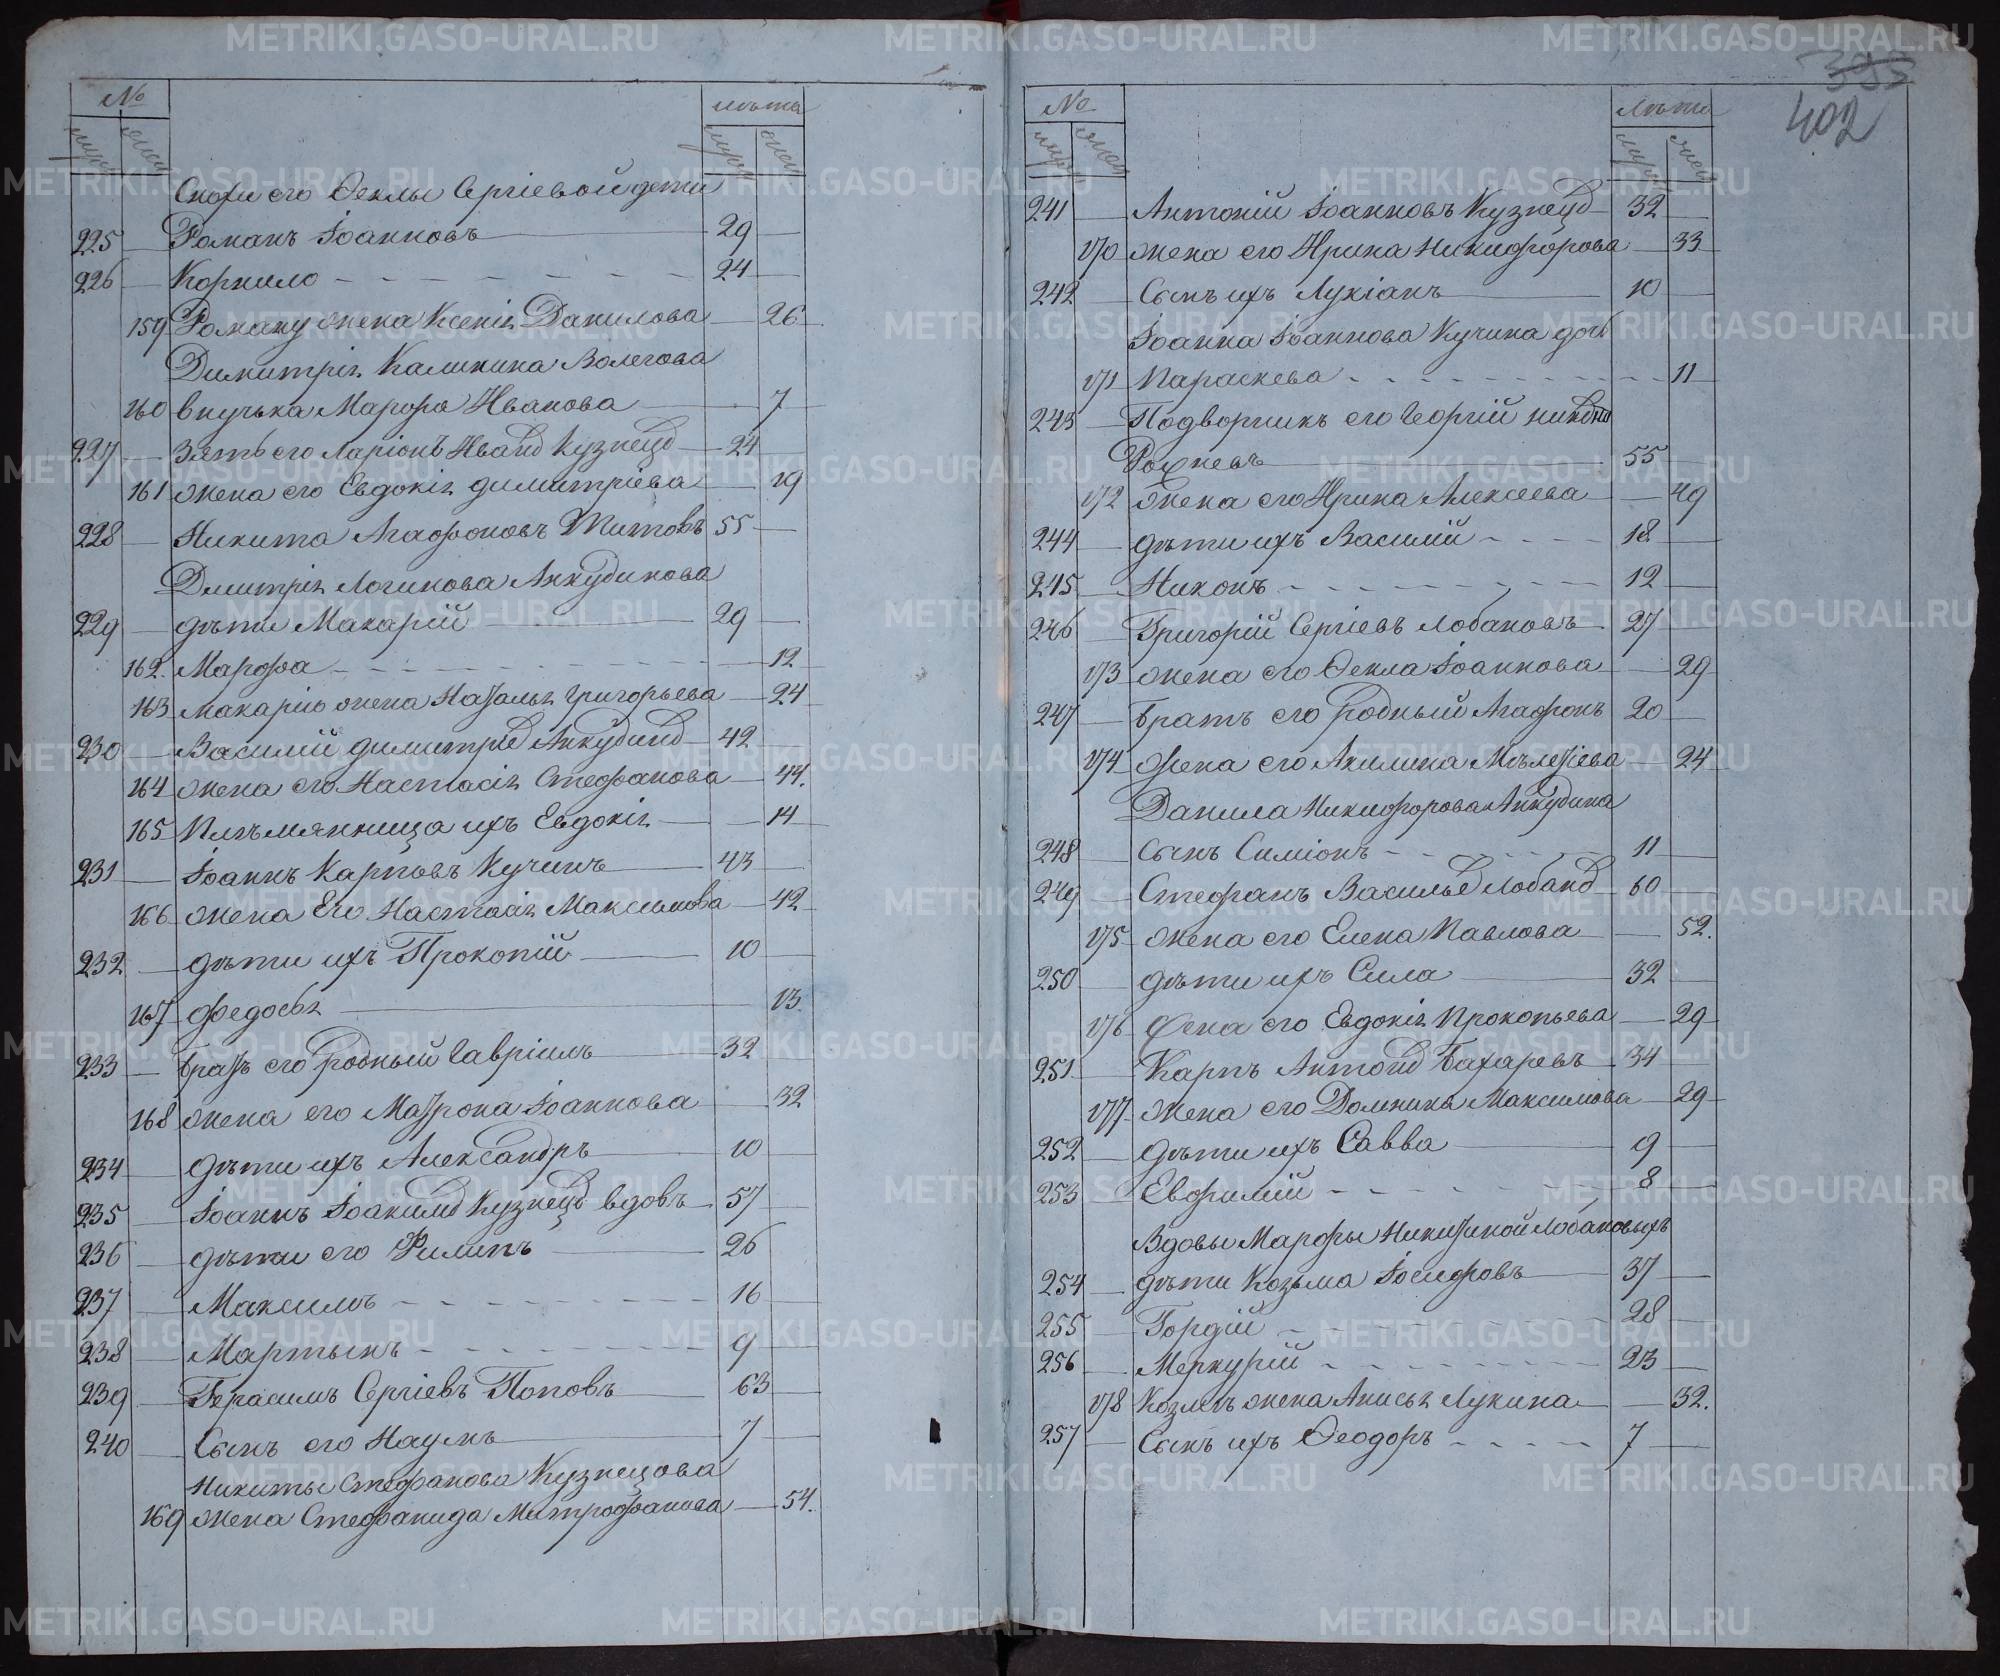 № лѣта
муж жен муж жен
Снохи его Ѳеклы Сергіевой дети
225 Романъ Іоанновъ 29
226 Корнило 24
159 Роману жена Ксенія Данилова 26
Димитрія Калинина Волегова
160 внучька Марѳа Иванова 7
227 Зять его Ларіонъ Иванов Кузнецов 24
161 жена его Евдокія димитріева 19
228 Никита Агафоновъ Титовъ 55
Дмитрія Логинова Анкудинова
229 дѣти Макарій 29
162. Марѳа 12
163 Макарію жена Наталья Григорьева 24
230 Василій димитріев Анкудинов 42
164 жена его Настасія Стефанова 44.
165 Племянница ихъ Евдокія 14
231 Іоаннъ Карповъ Кучинъ 43
166 жена Его Настасія Максимова 42
232 дѣти ихъ Прокопій 10
167 Федосья 13.
233 братъ его родный Гавріилъ 32
168 жена его Матрона Іоаннова 32
234 дѣти ихъ Александръ 10
235 Іоаннъ Іоакимов Кузнецов вдовъ 57
236 дѣти его Филипъ 26
237 Максимъ 16
238 Мартынъ 9
239 Герасимъ Сергіевъ Поповъ 63
240 Сынъ его Наумъ 7
Никиты Стефанова Кузнецова
169 жена Стефанида Митрофанова 54.
393
402
№ лѣта
муж жен муж жен
241 Антоній Іоанновъ Кузнецов 32
170 жена его Ирина Никифорова 33
242 Сынъ ихъ Лукіанъ 10
Іоанна Іоаннова Кучина дочь
171 Параскева 11
243 Подворникъ его Георгій
55
172 жена его Ирина Алексеева 49
244 дѣти ихъ Василій 18
245 Никонъ 12
246 Григорій Сергіевъ Лобановъ 27
173 жена его Ѳекла Іоаннова 29
247 братъ его родный Агафонъ 20
174 Жена его Акилина Мелетіева 24
Данила Никифорова Анкудина
248 сынъ Симіонъ 11
249 Стефанъ Васильев Лобанов 60
175 жена его Елена Павлова 52.
250 дѣти ихъ Сила 32
176 Жена его Евдокія Прокопьева 29
251 Карпъ Антонов Бахаревъ 34
177 жена его Домника Максимова 29
252 дѣти ихъ Савва 9
253 Евфимій 8
Вдовы Марфы Никитиной Лобановыхъ
254 дѣти Козьма Іосифовъ 37
255 Гордій 28
256 Меркурій 23
178 Козмѣ жена Анисья Лукина 32.
257 Сынъ ихъ Ѳеодоръ 7